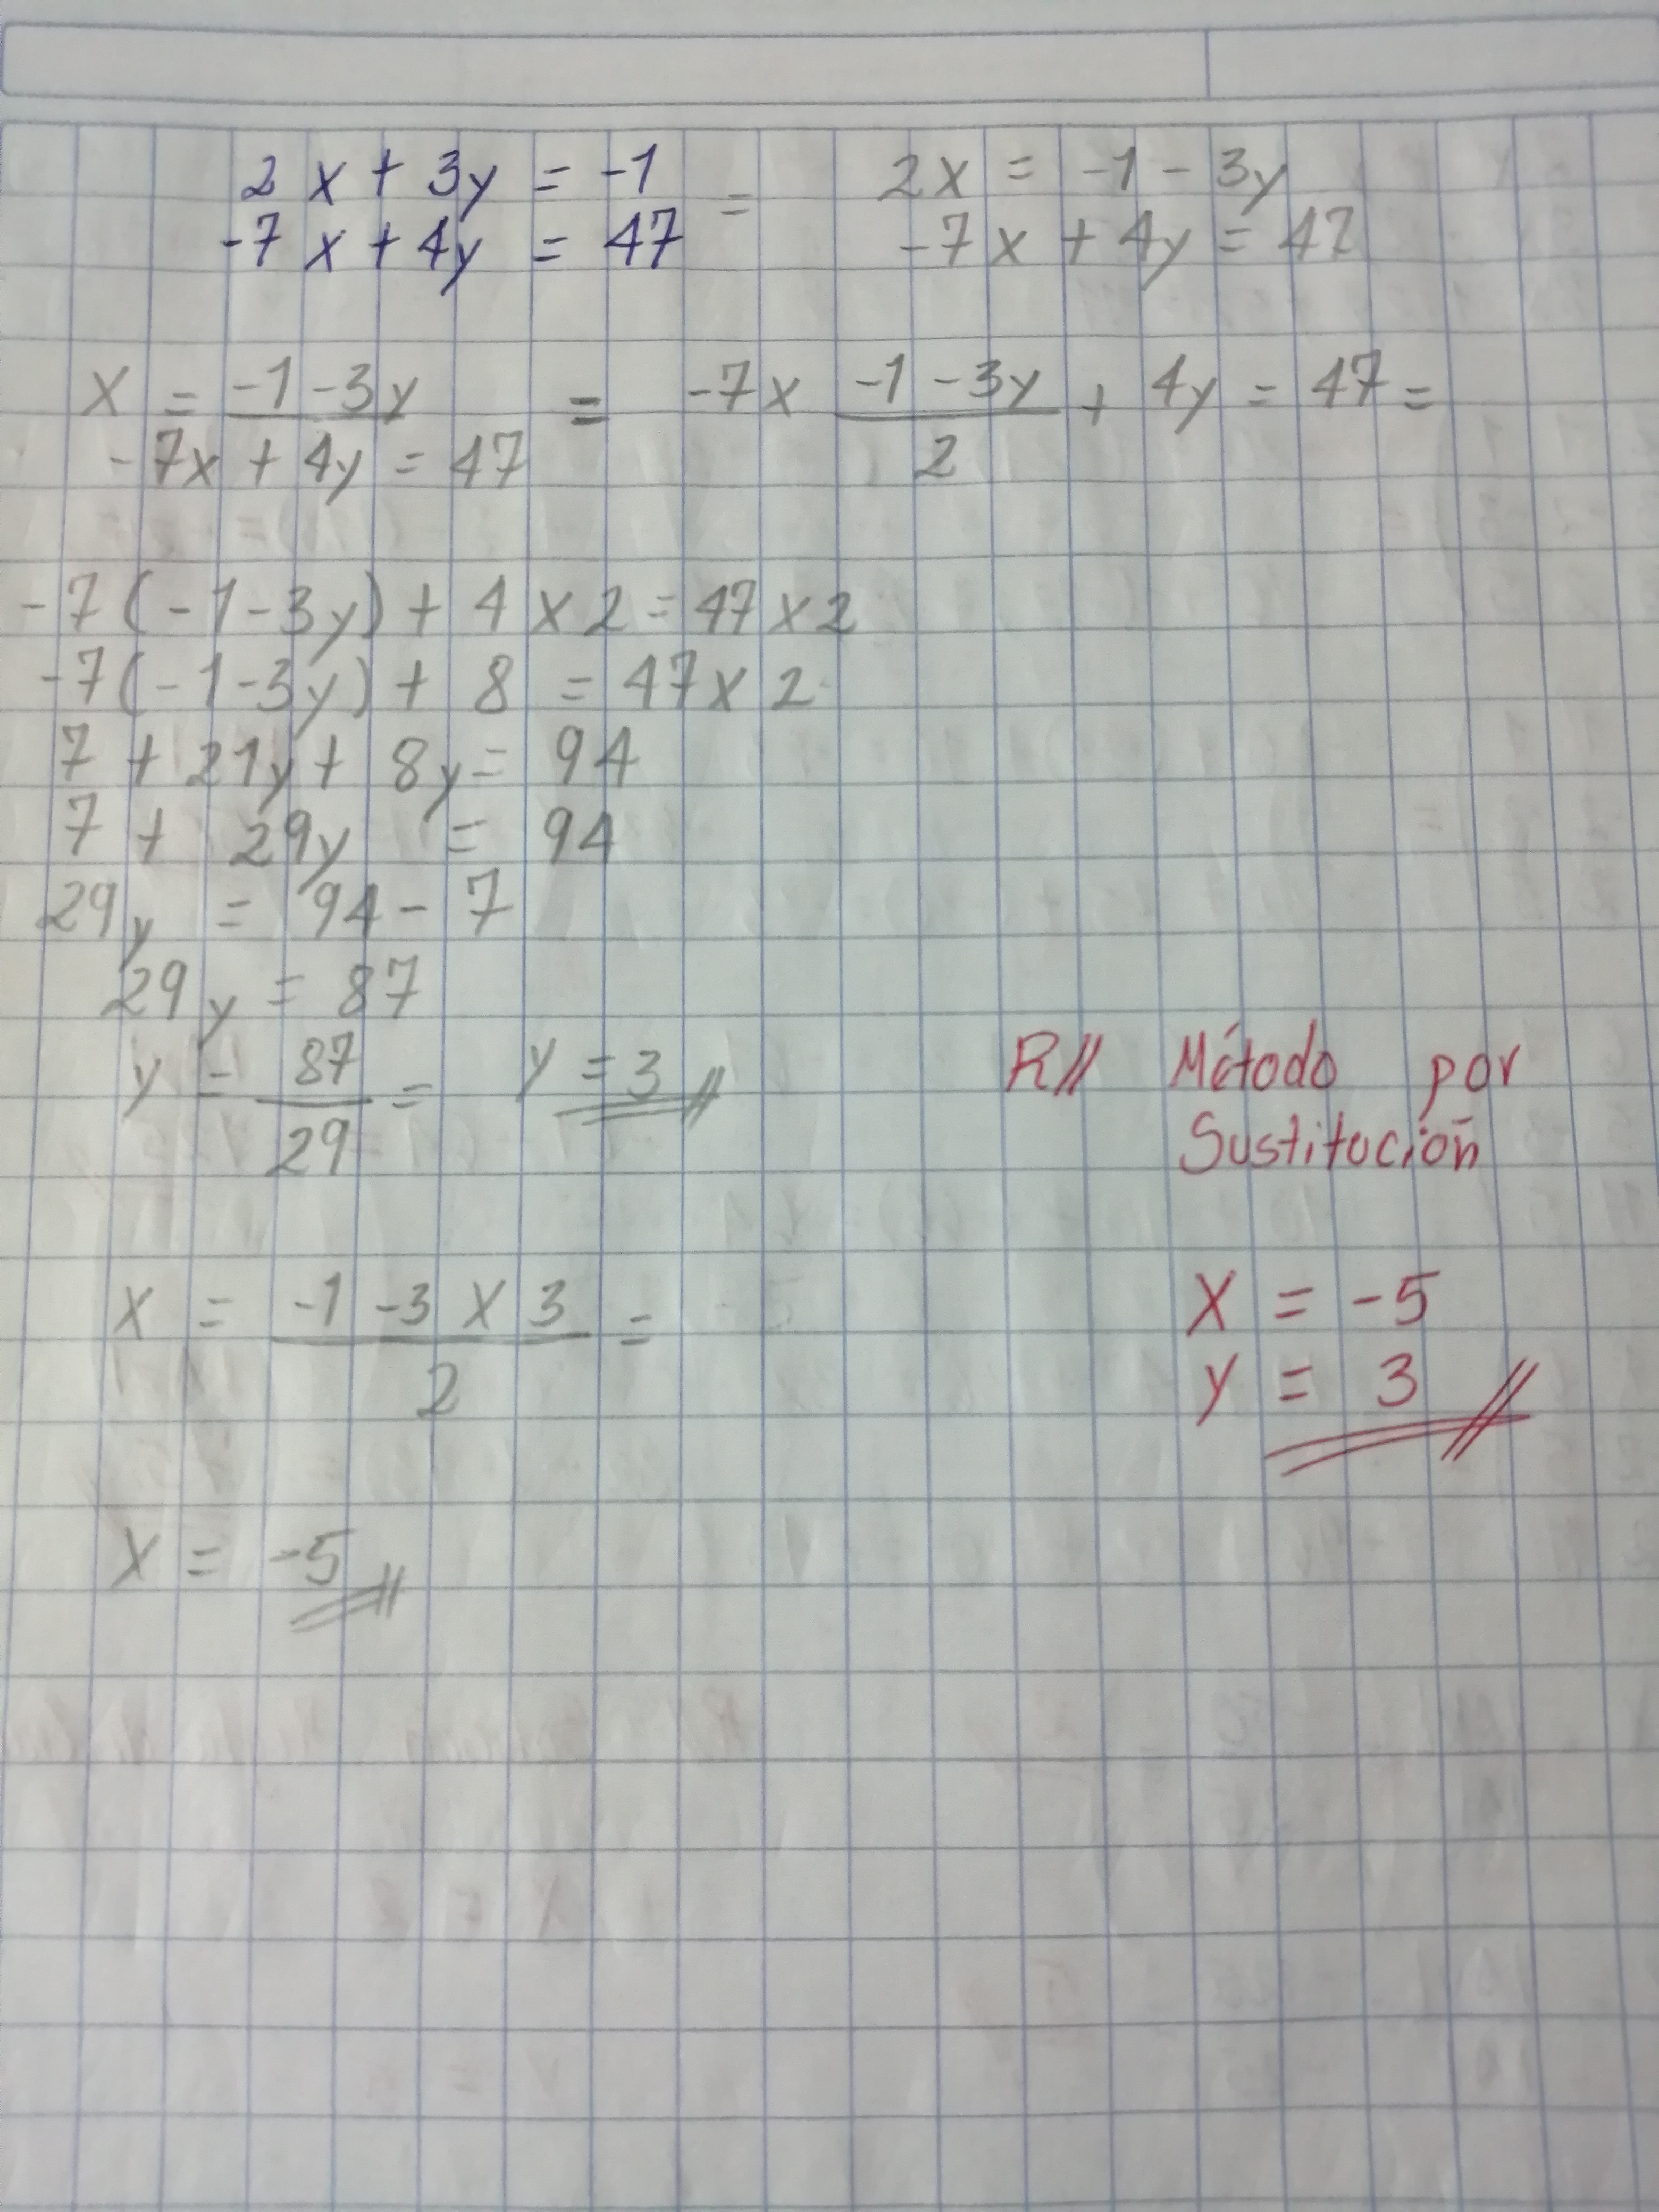 2x + 3y = -1 = 2x = -1 - 3y
-7x + 4y = 47 -7x + 4y = 47
x = -1 - 3y = -7x -1 - 3y + 4y = 47 =
-7x + 4y = 47 2
-7(-1-3y) + 4 x 2 = 47 x 2
-7(-1-3y) + 8 = 47 x 2
7 + 21y + 8y = 94
7 + 29y = 94
29y = 94 - 7
29y = 87
y = 87/29 = y = 3
R// Método por
Sustitución
x = -1 -3 x 3 =
2
x = -5
y = 3
x = -5